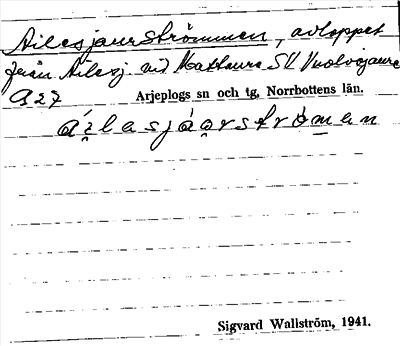 Ailesjaurströmmen, avloppet
från Ailesj vid Mattaure SV Vuolvojaure
A27 Arjeplogs sn och tg, Norrbottens län.
áịlasjáạrströman
Sigvard Wallström, 1941.